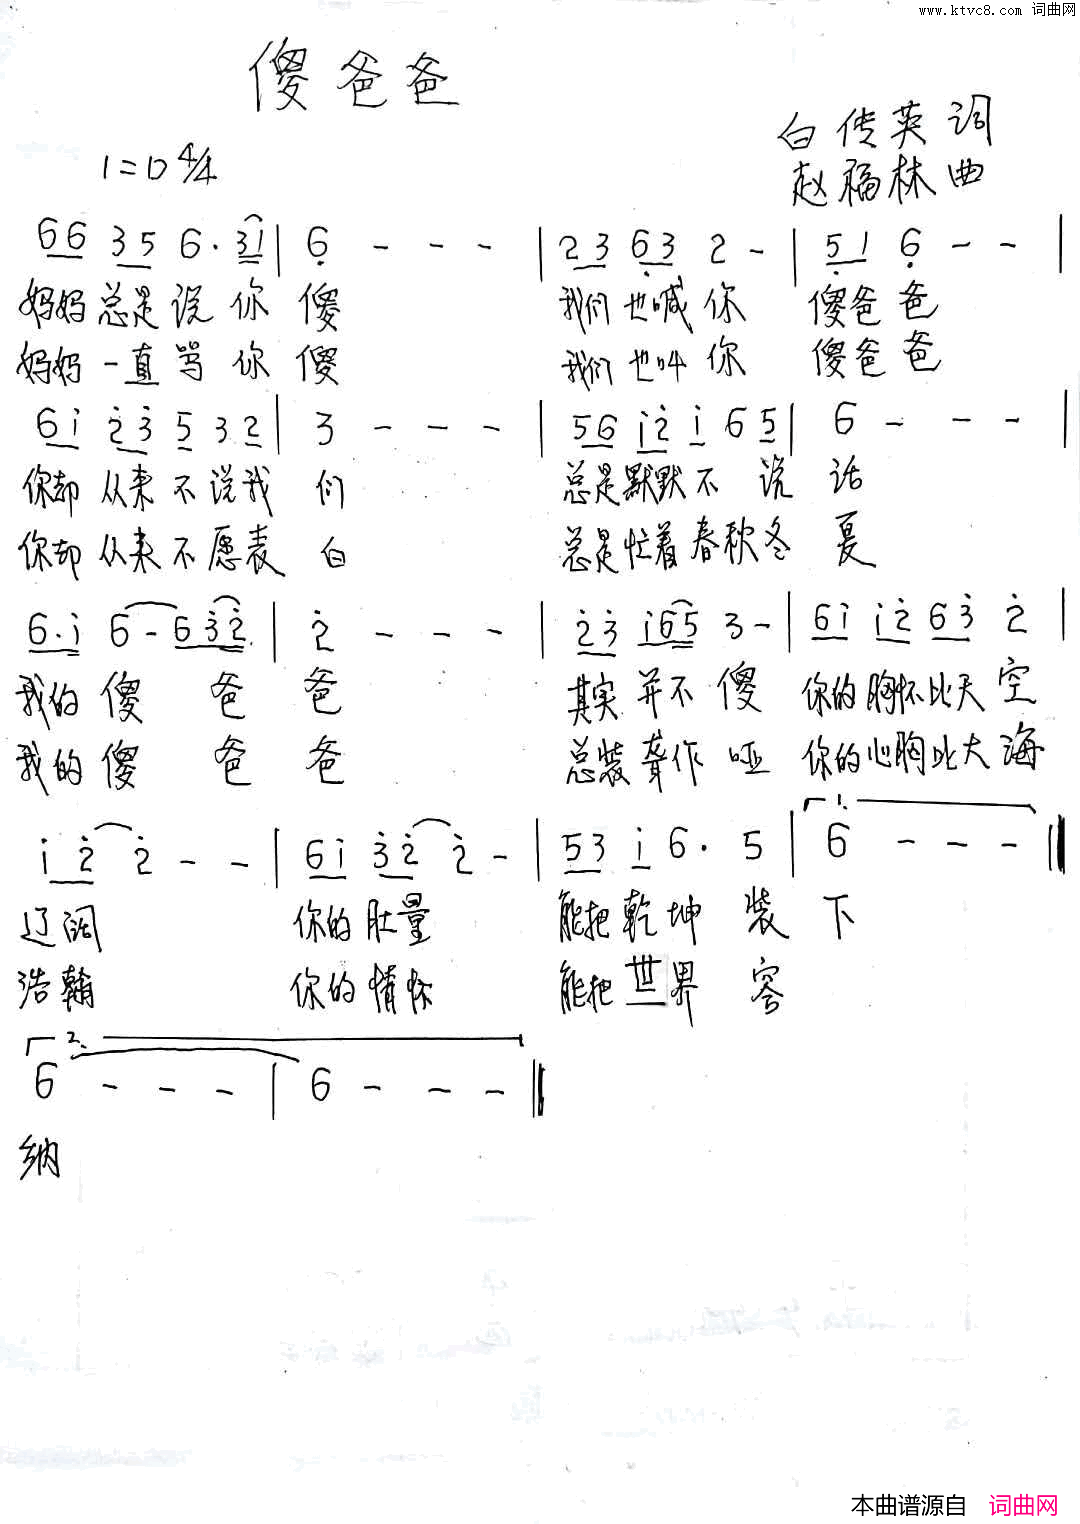 www.ktvc8.com 词曲网
傻爸爸
白传英词
1=D 4/4
赵福林曲
66 35 6· 31 | 6 - - - | 23 63 2 - | 51 6 - - |
妈妈总是说你傻 我们也喊你 傻爸爸
妈妈一直骂你傻 我们也叫你 傻爸爸
6i 23 5 32 | 3 - - - | 56 i2 i 65 | 6 - - - |
你却从来不说我们 总是默默不说话
你却从来不愿表白 总是忙着春秋冬夏
6·i 6-632 | 2 - - - | 23 i65 3 - | 6i i2 63 2 |
我的傻爸爸 其实并不傻 你的胸怀比天空
我的傻爸爸 总装聋作哑 你的心胸比大海
i2 2 - - | 6i 32 2 - | 53 i 6· 5 | 1. 6 - - - ‖
辽阔 你的肚量 能把乾坤装下
浩瀚 你的情怀 能把世界容
2. 6 - - - | 6 - - - ‖
纳
本曲谱源自 词曲网